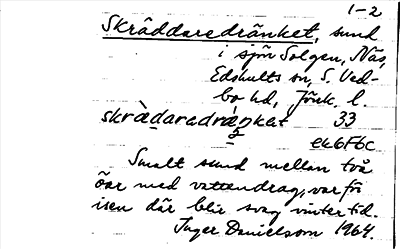 1-2
Skräddaredränket, sund
i sjön Solgen, Näs,
Edshults sn, S. Ved-
bo hd, Jönk. l.
skrädaredräŋkət 33
ek6F6c
Smalt sund mellan två
öar med vattendrag, varför
isen där blir svag vintertid.
Inger Danielsson 1964.